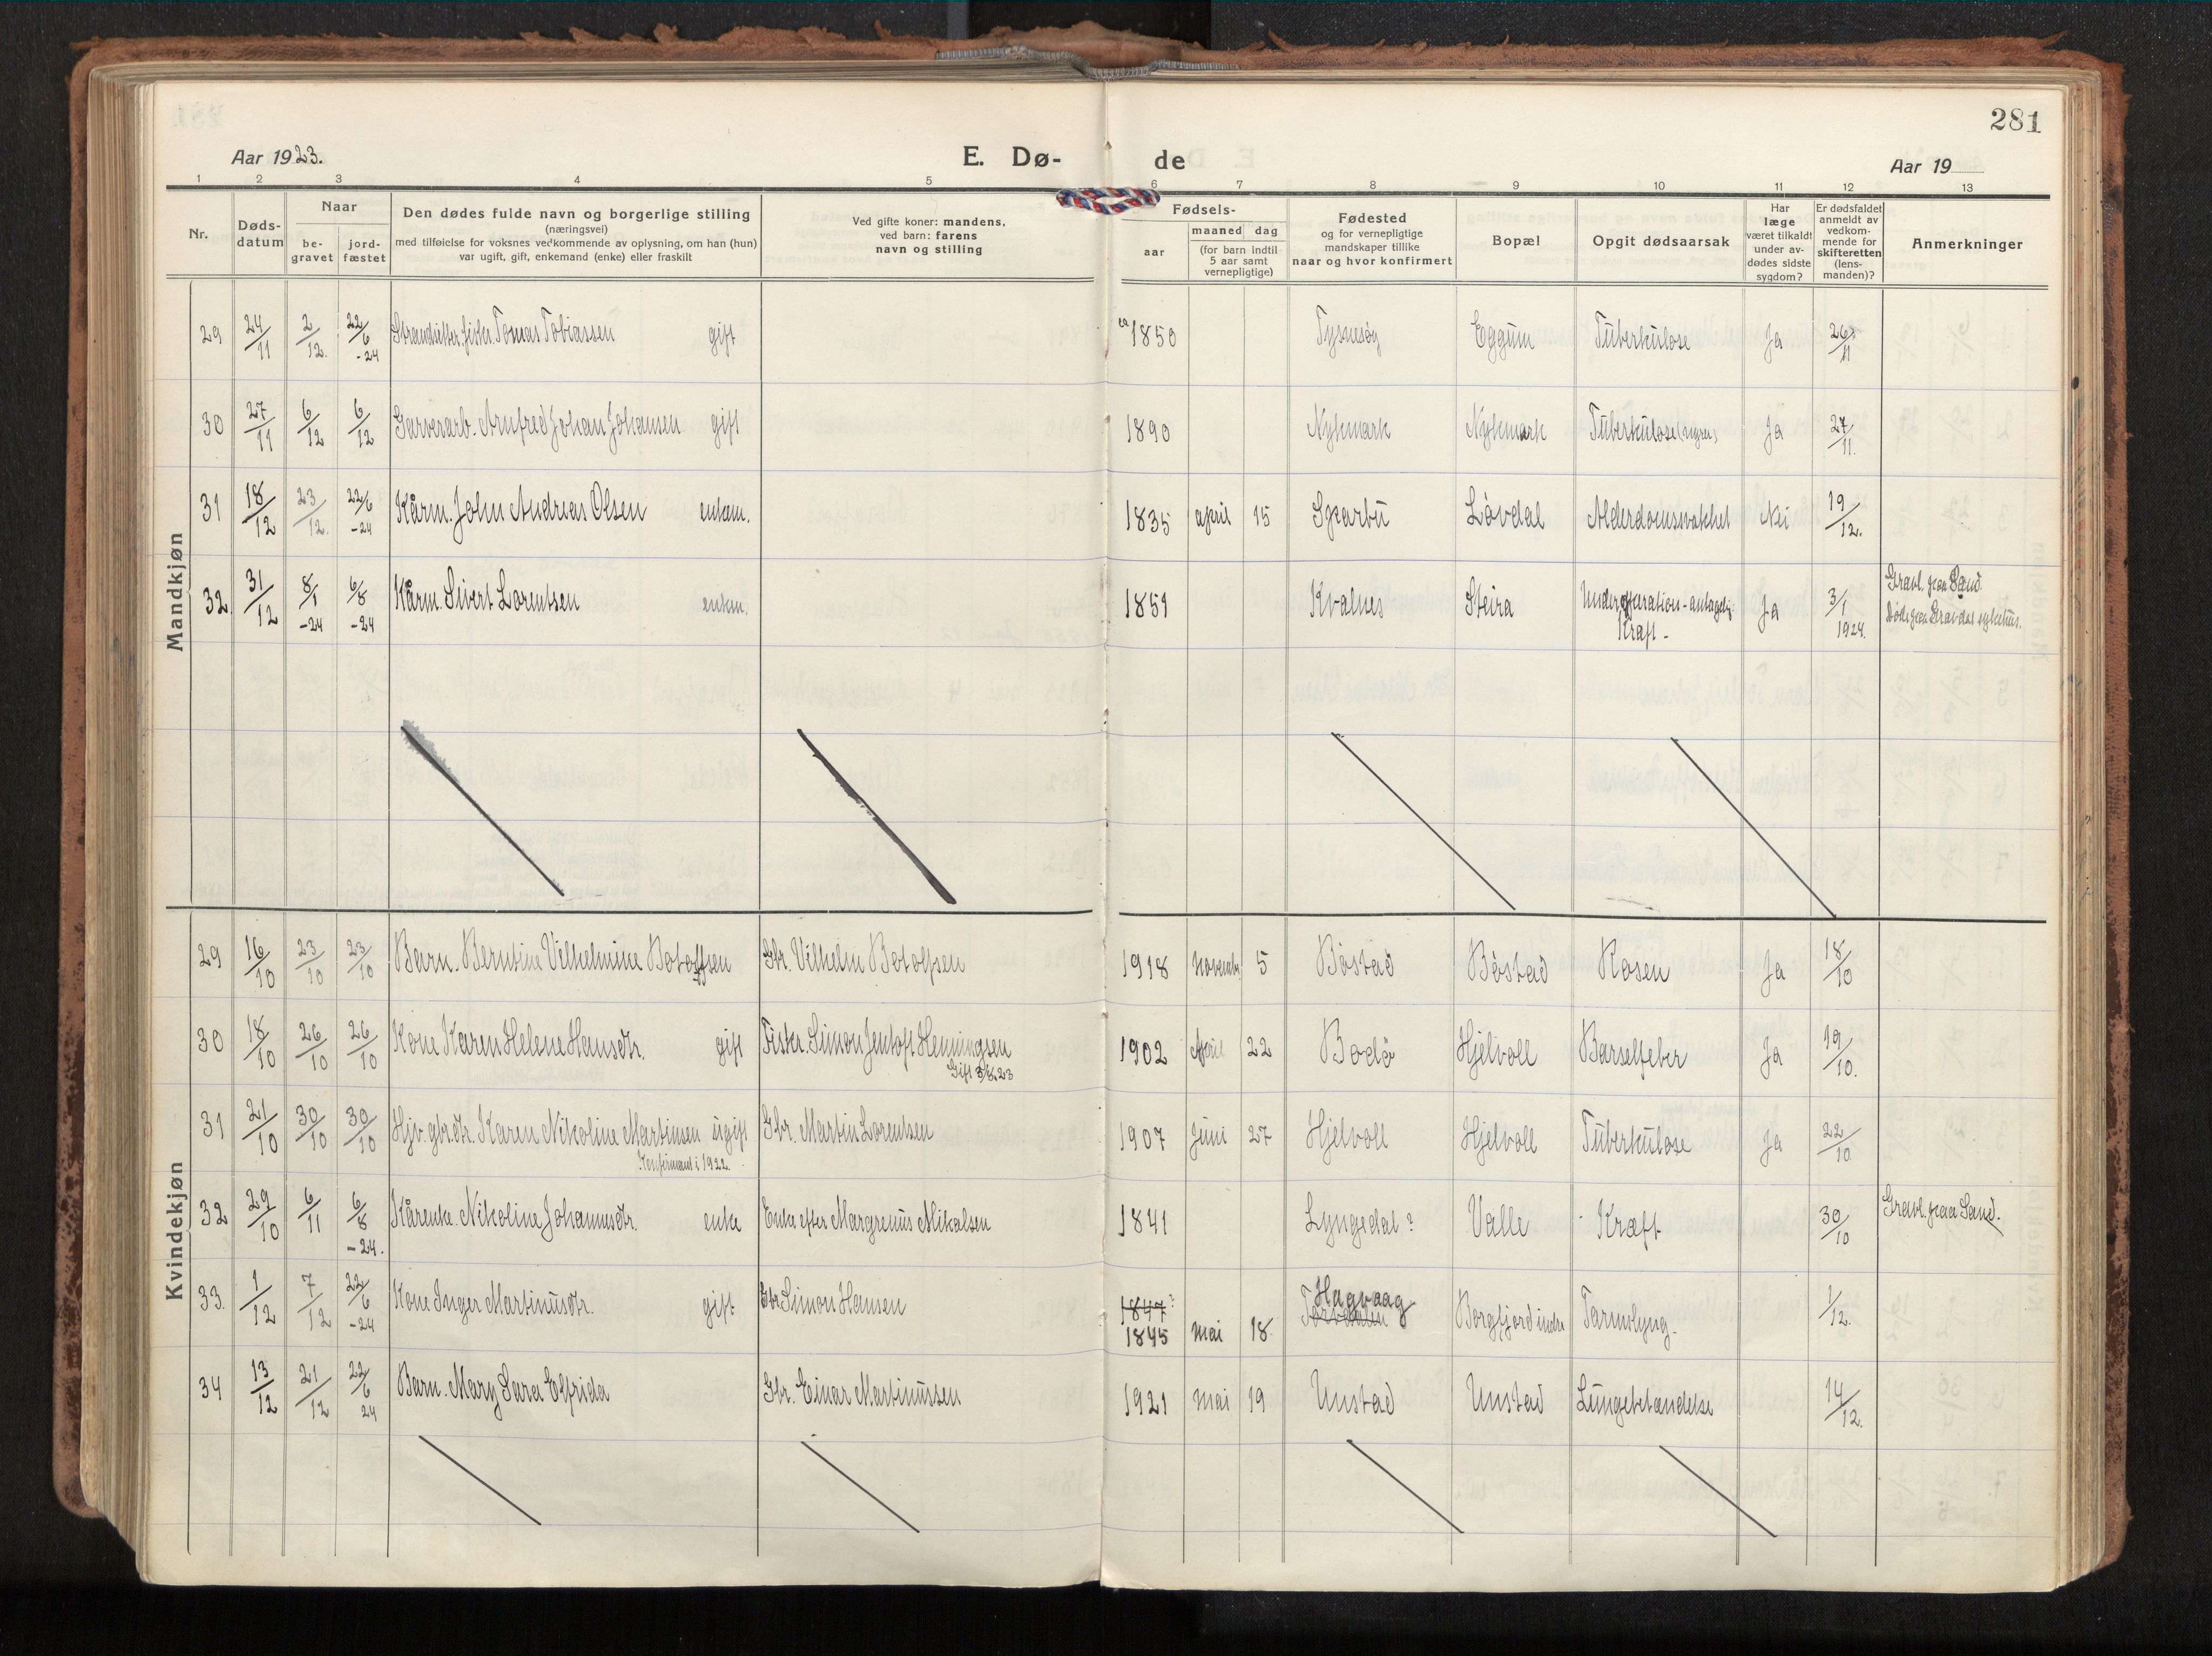 281
Aar 1923.
E. Dø-
de
Aar 19
1 2 3 4 5 6 7 8 9 10 11 12 13
Nr.
Døds-
datum
Naar
be-
gravet
jord-
fæstet
Den dødes fulde navn og borgerlige stilling
(næringsvei)
med tilføielse for voksnes vedkommende av oplysning, om han (hun)
var ugift, gift, enkemand (enke) eller fraskilt
Ved gifte koner: mandens,
ved barn: farens
navn og stilling
Fødsels-
aar
maaned dag
(for barn indtil
5 aar samt
vernepligtige)
Fødested
og for vernepligtige
mandskaper tillike
naar og hvor konfirmert
Bopæl
Opgit dødsaarsak
Har
læge
været tilkaldt
under av-
dødes sidste
sygdom?
Er dødsfaldet
anmeldt av
vedkom-
mende for
skifteretten
(lens-
manden)?
Anmerkninger
Mandkjøn
29 24/11 2/12. 22/6 -24 Strandsitter, fisker Tomas Tobiassen gift ca 1850 Tysnesøy Eggum Tuberkulose Ja 26/11
30 27/11 6/12 6/12 Garverarb. Arnfred Johan Johansen gift 1890 Nykmark Nykmark Tuberkulose (nyrer) Ja 27/11.
31 18/12 23/12. 22/6 -24 Kårm. John Andreas Olsen enkem. 1835 april 15 Sparbu Løvdal Alderdomssvakhet Nei 19/12.
32. 31/12 8/1 -24 6/8 -24 Kårm. Sivert Lorentsen enkm. 1851 Kvalnes Steira Under operation - antagelig Ja 3/1 1924. Gravl. paa Sand.
Kræft - Døde paa Gravdal sykehus.
Kvindekjøn
29 16/10 23/10 23/10 Barn. Berntine Vilhelmine Botolfsen Gbr. Vilhelm Botolfsen 1918 november 5 Bøstad Bøstad Rosen Ja 18/10
30 18/10 26/10 26/10 Kone Karen Helene Hansdtr. gift Fisker. Simon Jentoft Henningsen 1902 April 22 Bodø Hjelvoll Barselfeber Ja 19/10.
Gift 5/8.23
31 21/10 30/10 30/10 Hjv. gbr.dtr. Karen Nikoline Martinsen ugift Gbr. Martin Lorentsen 1907 Juni 27 Hjelvoll Hjelvoll Tuberkulose Ja 22/10
Konfirmand i 1922.
32 29/10 6/11 6/8 -24. Kårenke. Nikoline Johannesdtr. enke Enke efter Margrenus Mikalsen 1841 Lyngedal? Valle Kræft 30/10 Gravl. paa Sand.
33. 1/12 7/12 22/6 -24 Kone Inger Martinusdtr. gift Gbr Simon Hansen 1847? 1845 mai 18 Hagvaag Borgfjord indre Tarmslyng. 1/12.
34 13/12 21/12 22/6 24 Barn. Mary Sara Elfrida Gbr. Einar Martinussen 1921 mai 19 Unstad Unstad Lungebetændelse 14/12.